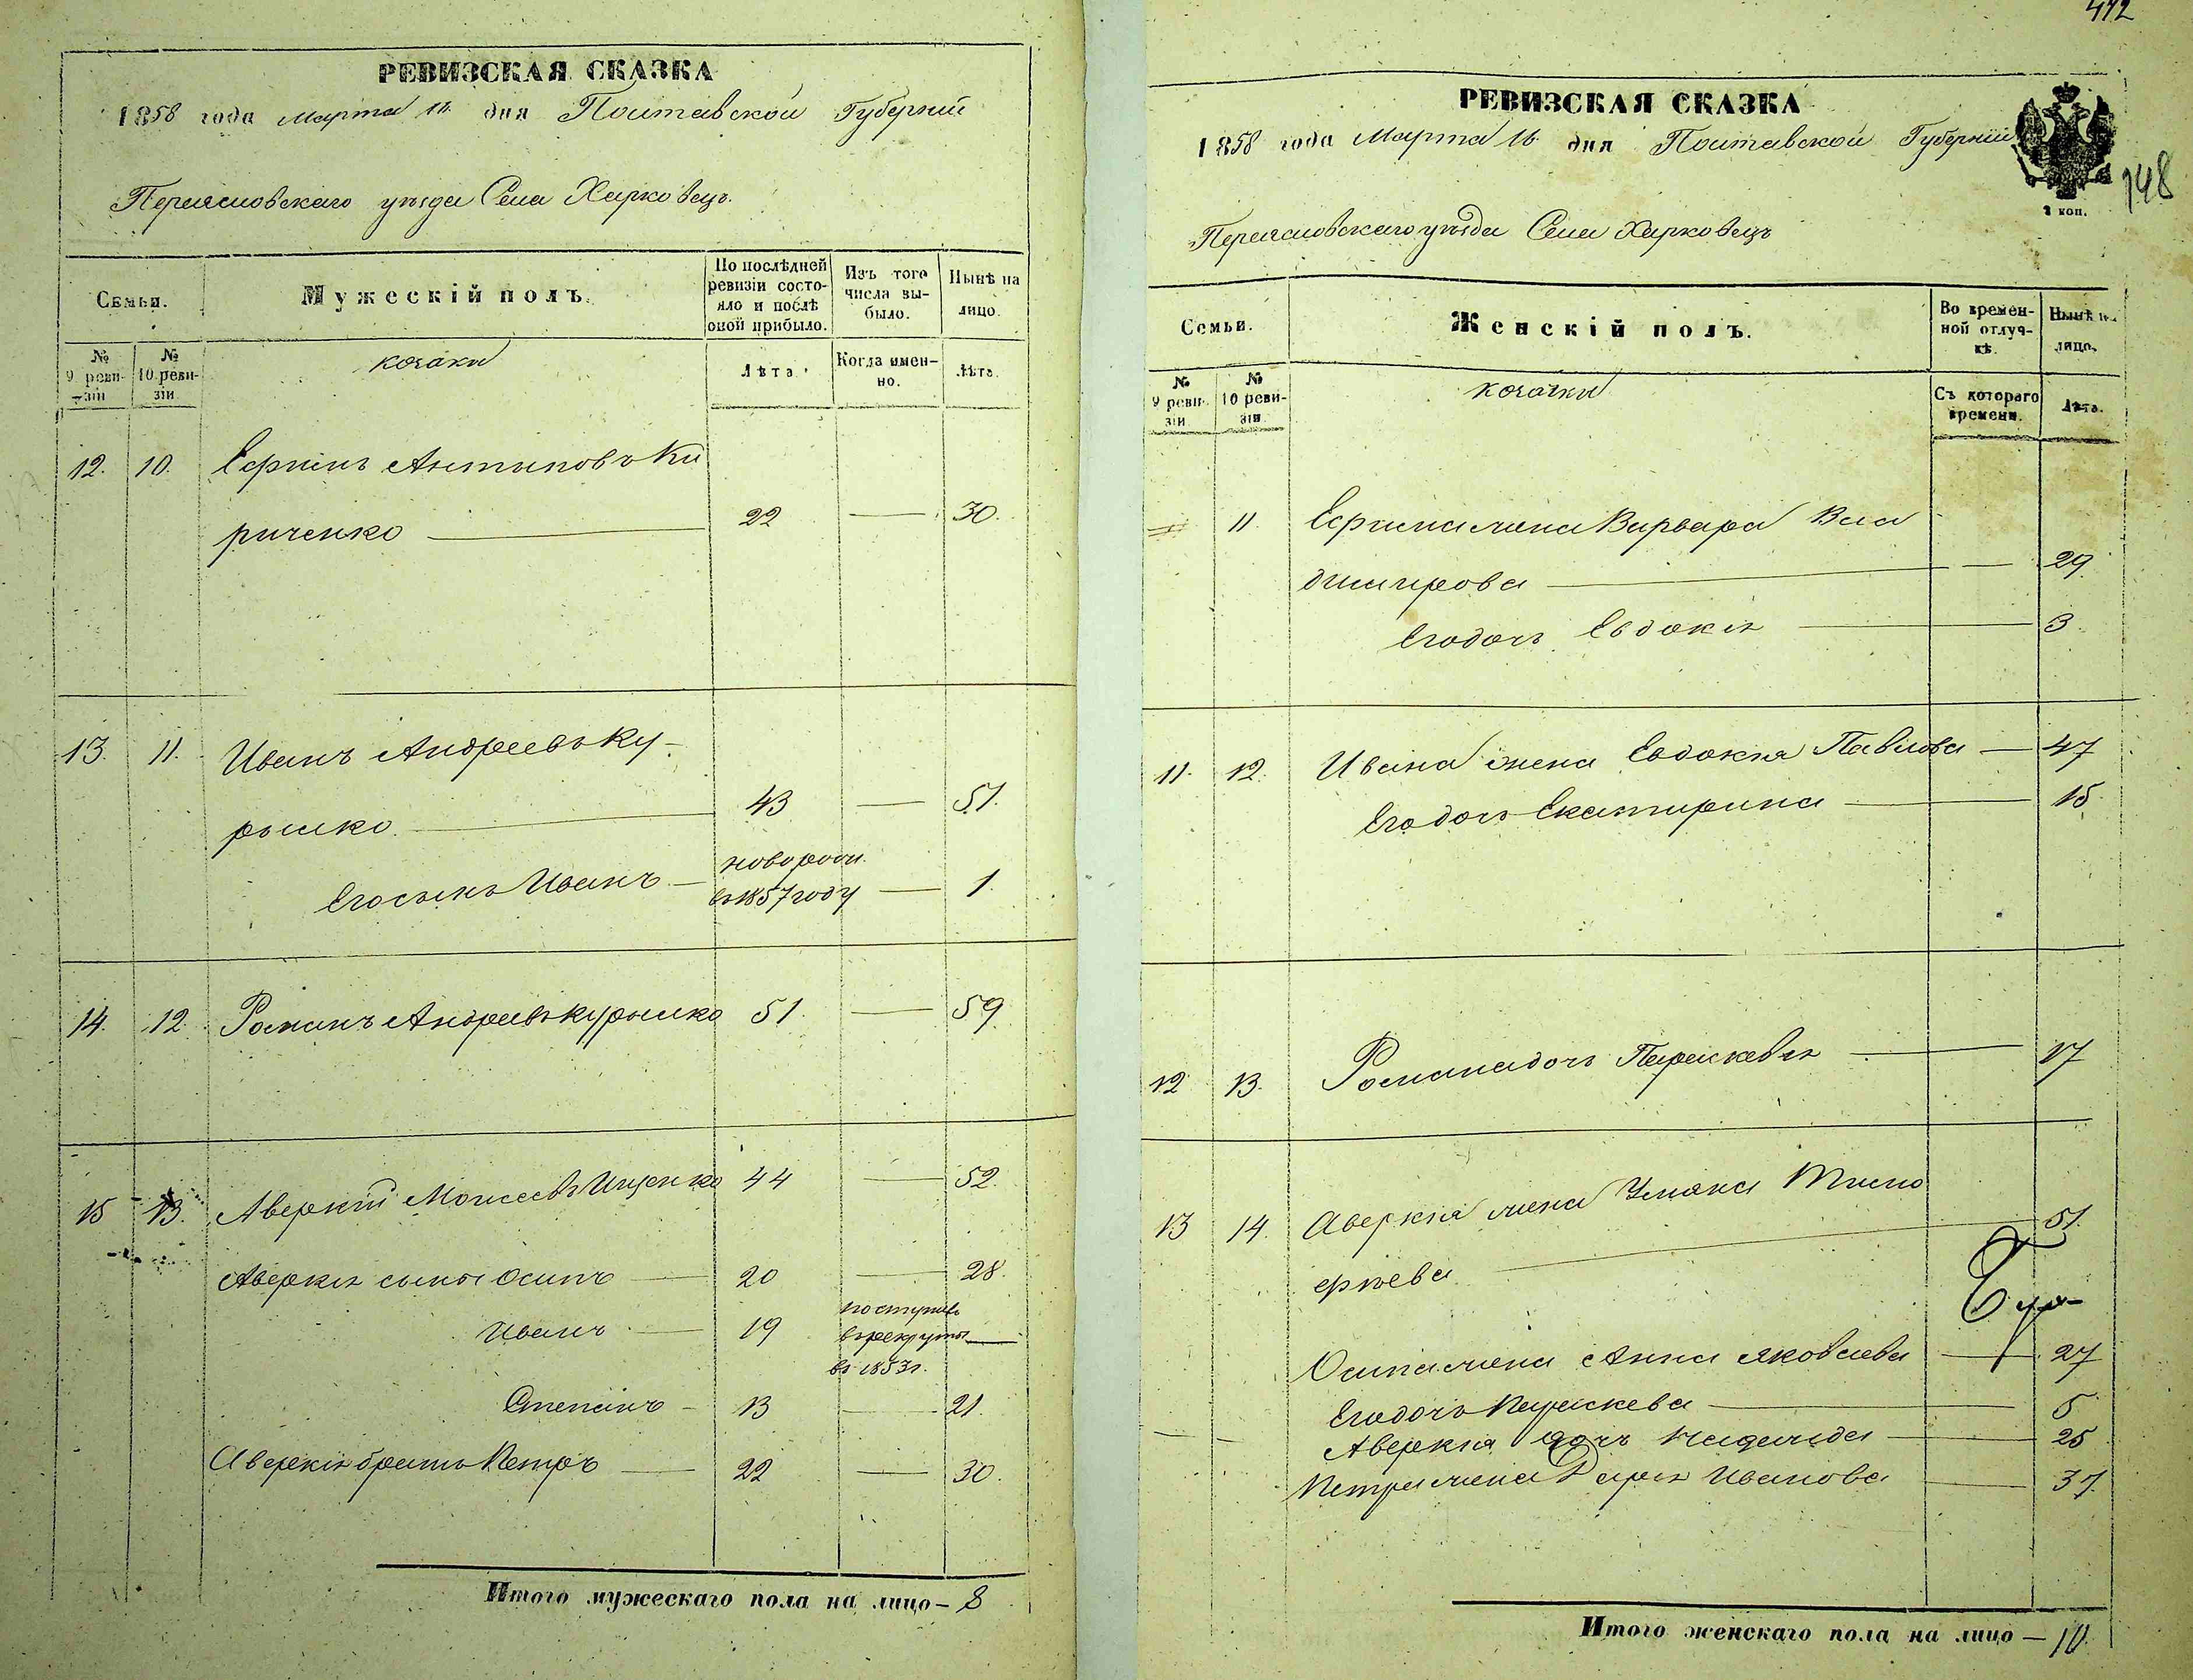 РЕВИЗСКАЯ СКАЗКА
1858 года Марта 11 дня Полтавской Губерніи
Переяславскаго уѣзда Села Харковець.
Семьи.
Мужескій полъ.
По послѣдней ревизіи состояло и послѣ оной прибыло.
Изъ того числа выбыло.
Нынѣ на лицо.
№ 9 ревизіи
№ 10 ревизіи
козаки
Лѣта.
Когда именно.
Лѣта.
12. 10. Ефимъ Антиповъ Ки
риченко 22 — 30.
13. 11. Иванъ Андреевъ Ку-
рышко 43 — 51.
Его сынъ Иванъ — новорожд.
въ 1857 году — 1.
14. 12. Романъ Андреевъ Курышко 51. — 59.
15 13. Аверкій Моисеевъ Ищенко 44 — 52.
Аверкія сыны Осипъ — 20 — 28.
Иванъ — 19 поступилъ
въ рекруты —
въ 1853 г.
Степанъ — 13 — 21.
Аверкія братъ Петръ — 22 — 30.
Итого мужескаго пола на лицо — 8
412
РЕВИЗСКАЯ СКАЗКА
1858 года Марта 11 дня Полтавской Губерніи
148
Переяславскаго уѣзда Села Харковець
коп.
Семьи.
Женскій полъ.
Во временной отлучкѣ.
Нынѣ на лицо.
№ 9 ревизіи
№ 10 ревизіи
козачки
Съ котораго времени.
Лѣта.
11. Ефима жена Варвара Вла
димирова — 29.
Его дочь Евдокія — 3.
11. 12. Ивана жена Евдокія Павлова — 47
Его дочь Екатирина — 15.
12 13. Романа дочь Параскевія — 17
13 14. Аверкія жена Ульяна Тимо
фѣева — 51.
Осипа жена Анна Яковлева — 27
Его дочь Параскева — 5
Аверкія дочь Надежда — 25
Петра жена Дарья Иванова — 37.
Итого женскаго пола на лицо — 10.